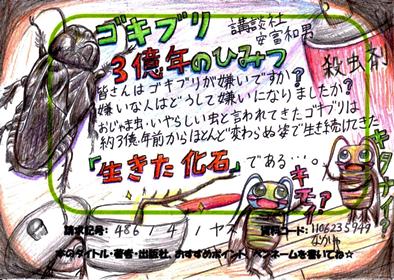 ゴキブリ
3億年のひみつ
講談社
安富和男
殺虫剤
皆さんはゴキブリが嫌いですか?
嫌いな人はどうして嫌いになりましたか?
おじゃま虫・いやらしい虫と言われてきたゴキブリは
約3億年前からほとんど変わらぬ姿で生き続けてきた
『生きた化石』である…。
キモイ?
キタナイ?
請求記号: 486 / 4 / ヤス
資料コード: 1106235949
本のタイトル・著者・出版社、おすすめポイント、ペンネームを書いてね☆